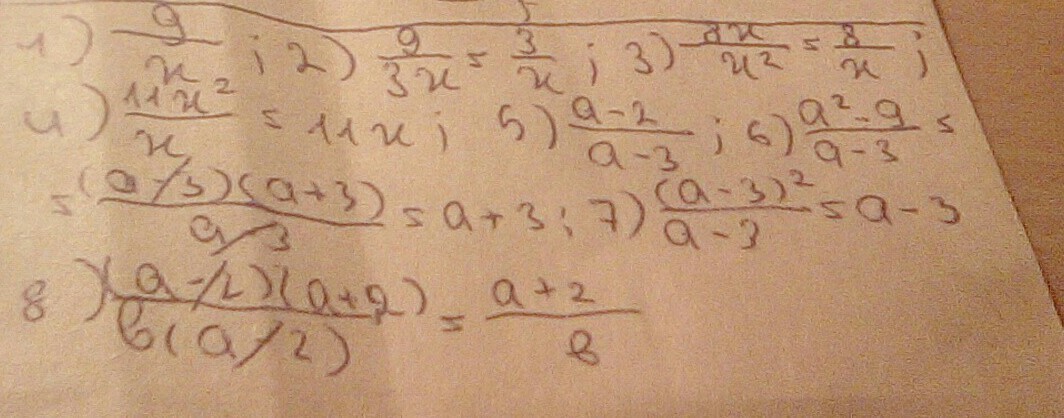 1) 9/x ; 2) 9/3x = 3/x ; 3) 8x/x² = 8/x ;
4) 11x²/x = 11x ; 5) a-2/a-3 ; 6) a²-9/a-3 =
= (a-3)(a+3)/a-3 = a+3 ; 7) (a-3)²/a-3 = a-3
8) (a-2)(a+2)/b(a-2) = a+2/b